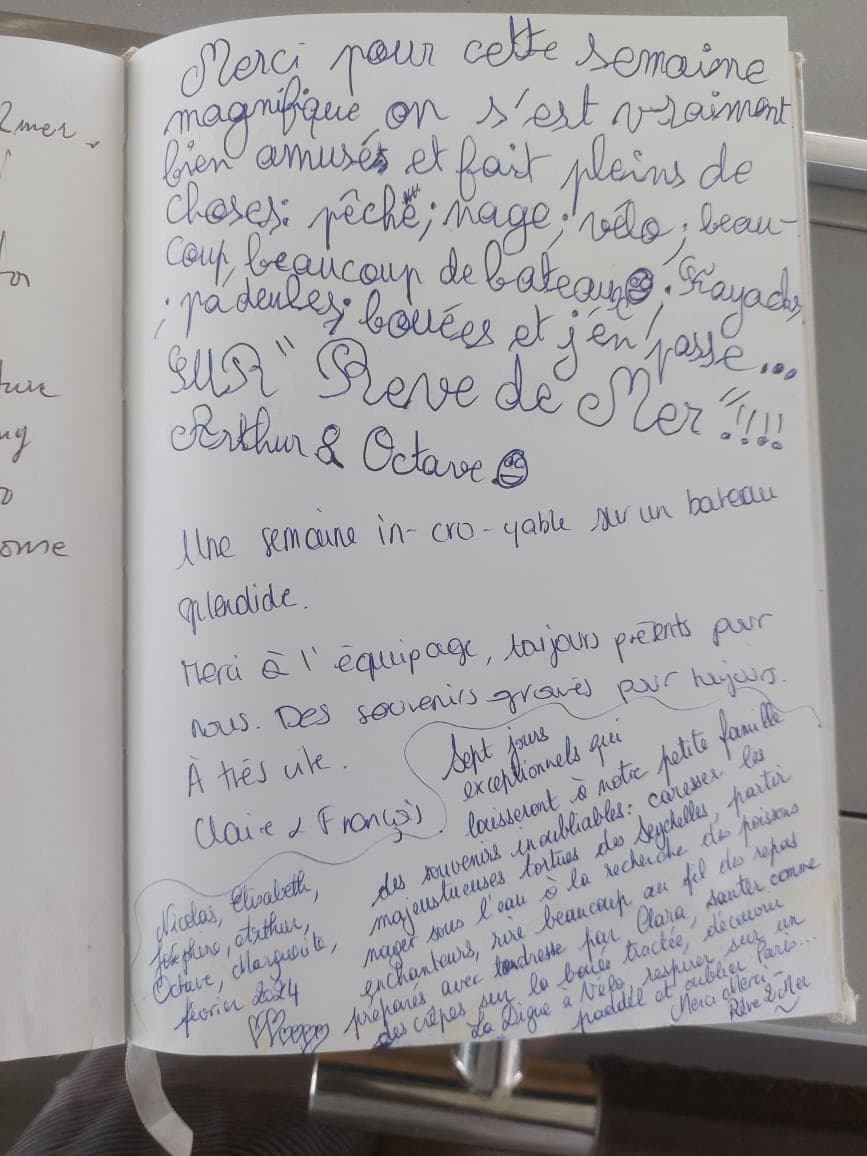 2mer.
for
ture
ng
ome
Merci pour cette semaine
magnifique, on s'est vraiment
bien amusés et fait pleins de
choses: pêche; nage; vélo; beau-
coup, beaucoup de bateau; Kayacks
; padeules; bouées et j'en passe...
SUR "Reve de Mer"!!!!
Arthur & Octave
Une semaine in-cro-yable sur un bateau
splendide.
Merci à l'équipage, toujours présents pour
nous. Des souvenirs gravés pour toujours.
À très vite.
Claire & François
Sept jours
exceptionnels qui
laisseront à notre petite famille
des souvenirs inoubliables: caresser les
majestueuses tortues des Seychelles, partir
nager sous l'eau à la recherche des poissons
enchanteurs, rire beaucoup au fil des repas
préparés avec tendresse par Clara, sauter comme
des crêpes sur la bouée tractée, découvrir
La Digue à Vélo, respirer sur un
paddel et oublier Paris...
Merci Merci -
Rêve 2 Mer
Nicolas, Elisabeth,
Joséphine, Arthur,
Octave, Marguerite,
février 2024